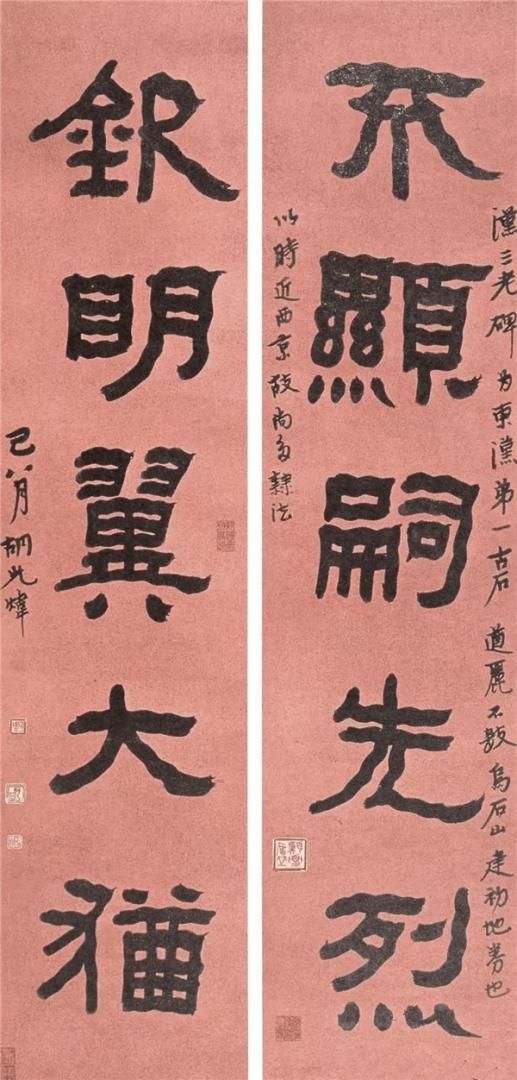 漢三老碑为東漢第一古石遒麗不數烏石山建初地券也
不顯嗣先烈
以時近西京故尚多隸法
欽明翼大猶
巳八月胡光煒